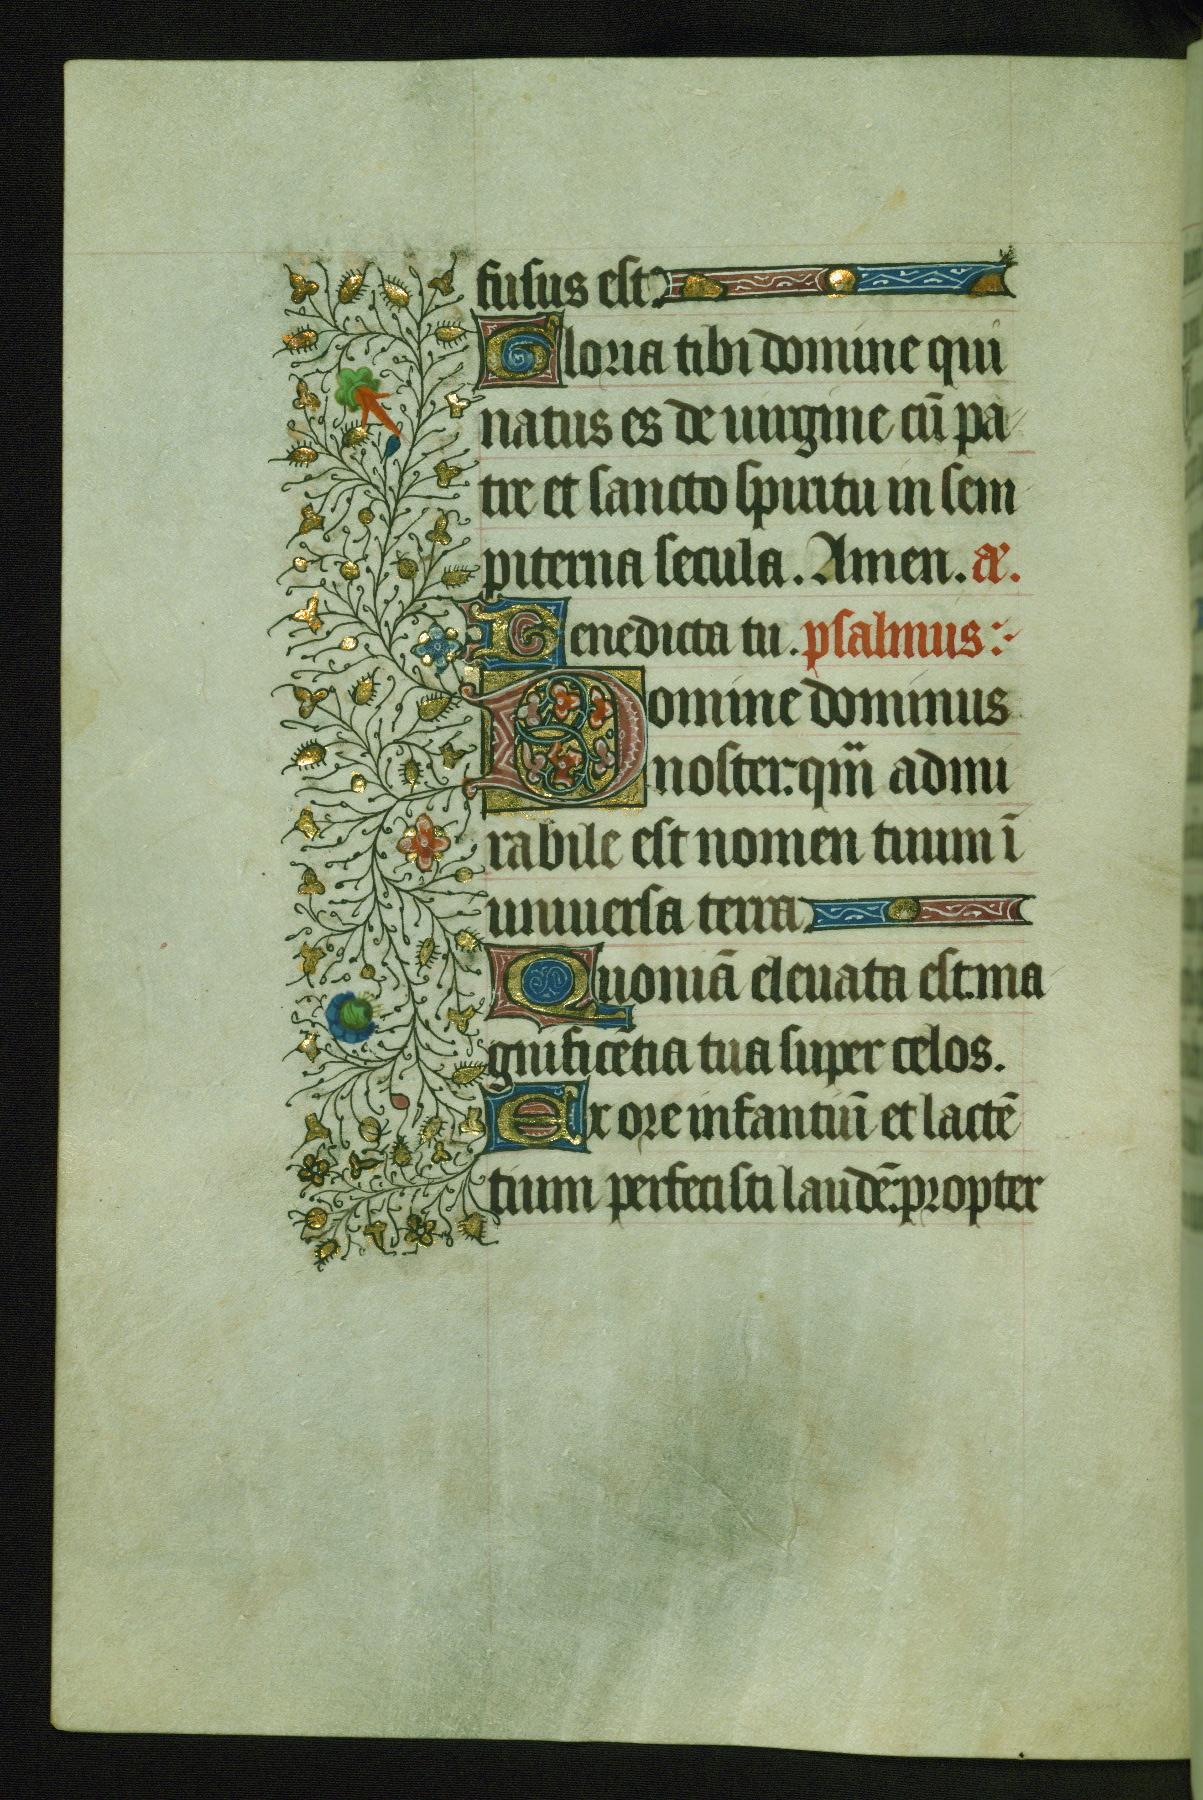 fusus est.
Gloria tibi domine qui
natus es de uirgine cū pa
tre et sancto spiritu in sem
piterna secula. Amen. añ.
Benedicta tu. psalmus:
Domine dominus
noster: qm̄ admi
rabile est nomen tuum ī
uniuersa terra
Quoniā eleuata est: ma
gnificētia tua super celos.
Ex ore infantiū et lactē
tium perfecisti laudē: propter